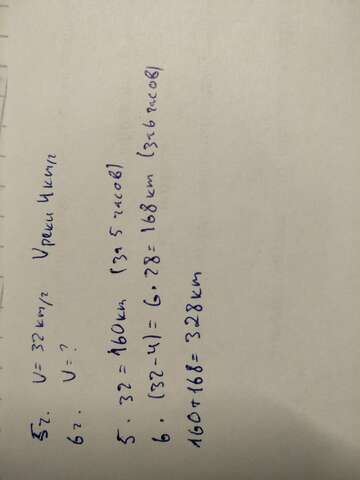 5ч. V = 32 км/ч Vреки 4 км/ч
6ч. V = ?
5 · 32 = 160км (за 5 часов)
6 · (32-4) = 6 · 28 = 168 км (за 6 часов)
160+168 = 328км